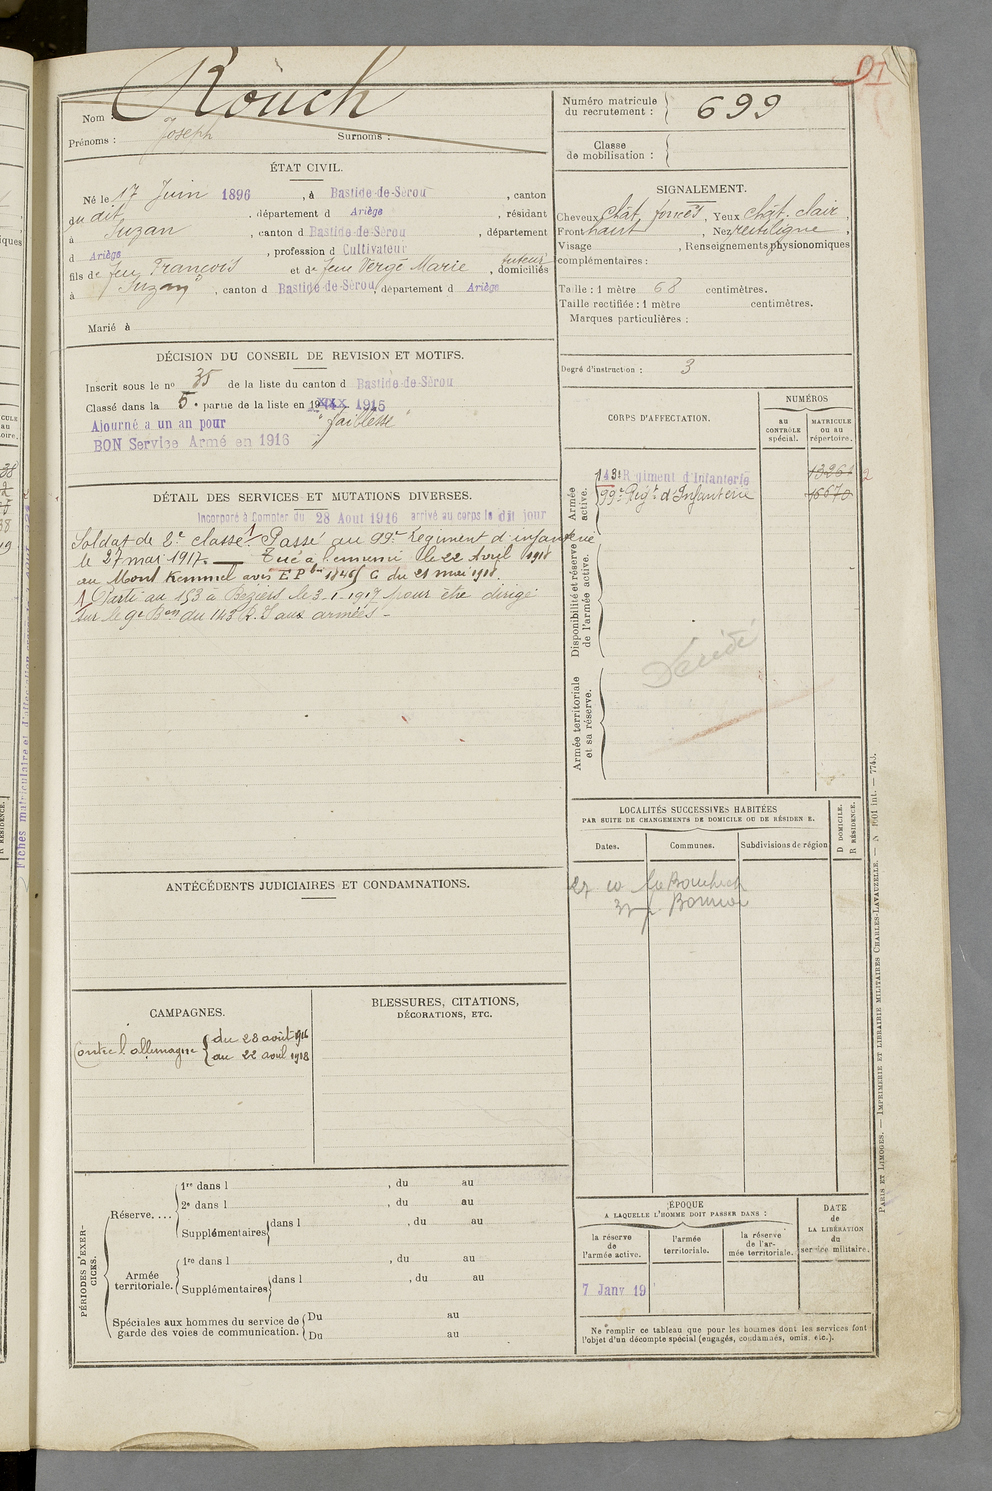 Nom : Rouch
Prénoms : Joseph Surnoms :
ÉTAT CIVIL.
Né le 17 Juin 1896, à Bastide-de-Sérou, canton
du dit, département d Ariège, résidant
à Suzan, canton d Bastide-de-Sérou, département
d Ariège, profession d Cultivateur
fils de feu François et de feue Vergé Marie, domiciliés
à Suzan, canton d Bastide-de-Sérou, département d Ariège
Marié à
DÉCISION DU CONSEIL DE REVISION ET MOTIFS.
Inscrit sous le no 35 de la liste du canton d Bastide-de-Sérou
Classé dans la 5e partie de la liste en 1915
Ajourné a un an pour "faiblesse"
BON Service Armé en 1916
DÉTAIL DES SERVICES ET MUTATIONS DIVERSES.
Incorporé à Compter du 28 Aout 1916 arrivé au corps le dit jour
Soldat de 2e classe. 1 Passé au 99e Régiment d'infanterie
le 27 mai 1917. — Tué à l'ennemi le 22 Avril 1918
au Mont Kemmel avis du 21 mai 1918.
1 Parti au 153 à Béziers le 3-1-1917 pour être dirigé
sur le 9e Bon du 143 R.I aux armées -
ANTÉCÉDENTS JUDICIAIRES ET CONDAMNATIONS.
CAMPAGNES.
Contre l'allemagne { du 28 août 1916
au 22 avril 1918
BLESSURES, CITATIONS,
DÉCORATIONS, ETC.
PÉRIODES D'EXERCICES.
Réserve.... 1re dans l , du au
2e dans l , du au
Supplémentaires dans l , du au
Armée territoriale. 1re dans l , du au
Supplémentaires dans l , du au
Spéciales aux hommes du service de Du au
garde des voies de communication. Du au
Numéro matricule
du recrutement : 699
Classe
de mobilisation :
SIGNALEMENT.
Cheveux chât. foncés, Yeux chât. clair,
Front haut, Nez rectiligne,
Visage , Renseignements physionomiques
complémentaires :
Taille : 1 mètre 68 centimètres.
Taille rectifiée : 1 mètre centimètres.
Marques particulières :
Degré d'instruction : 3
CORPS D'AFFECTATION.
NUMÉROS
AU CONTRÔLE spécial.
MATRICULE OU AU répertoire.
Armée active.
143e Régiment d'Infanterie
99e Régt d'Infanterie
Disponibilité et réserve de l'armée active.
Décédé
Armée territoriale et sa réserve.
LOCALITÉS SUCCESSIVES HABITÉES
PAR SUITE DE CHANGEMENTS DE DOMICILE OU DE RÉSIDENCE.
Dates. Communes. Subdivisions de région
D DOMICILE.
R RÉSIDENCE.
ÉPOQUE
A LAQUELLE L'HOMME DOIT PASSER DANS :
la réserve de l'armée active.
l'armée territoriale.
la réserve de l'armée territoriale.
DATE de LA LIBÉRATION du service militaire.
7 Janv 19
Ne remplir ce tableau que pour les hommes dont les services font
l'objet d'un décompte spécial (engagés, condamnés, omis, etc.).
PARIS ET LIMOGES. — IMPRIMERIE ET LIBRAIRIE MILITAIRES CHARLES-LAVAUZELLE. — N 1601 int. — 7743.